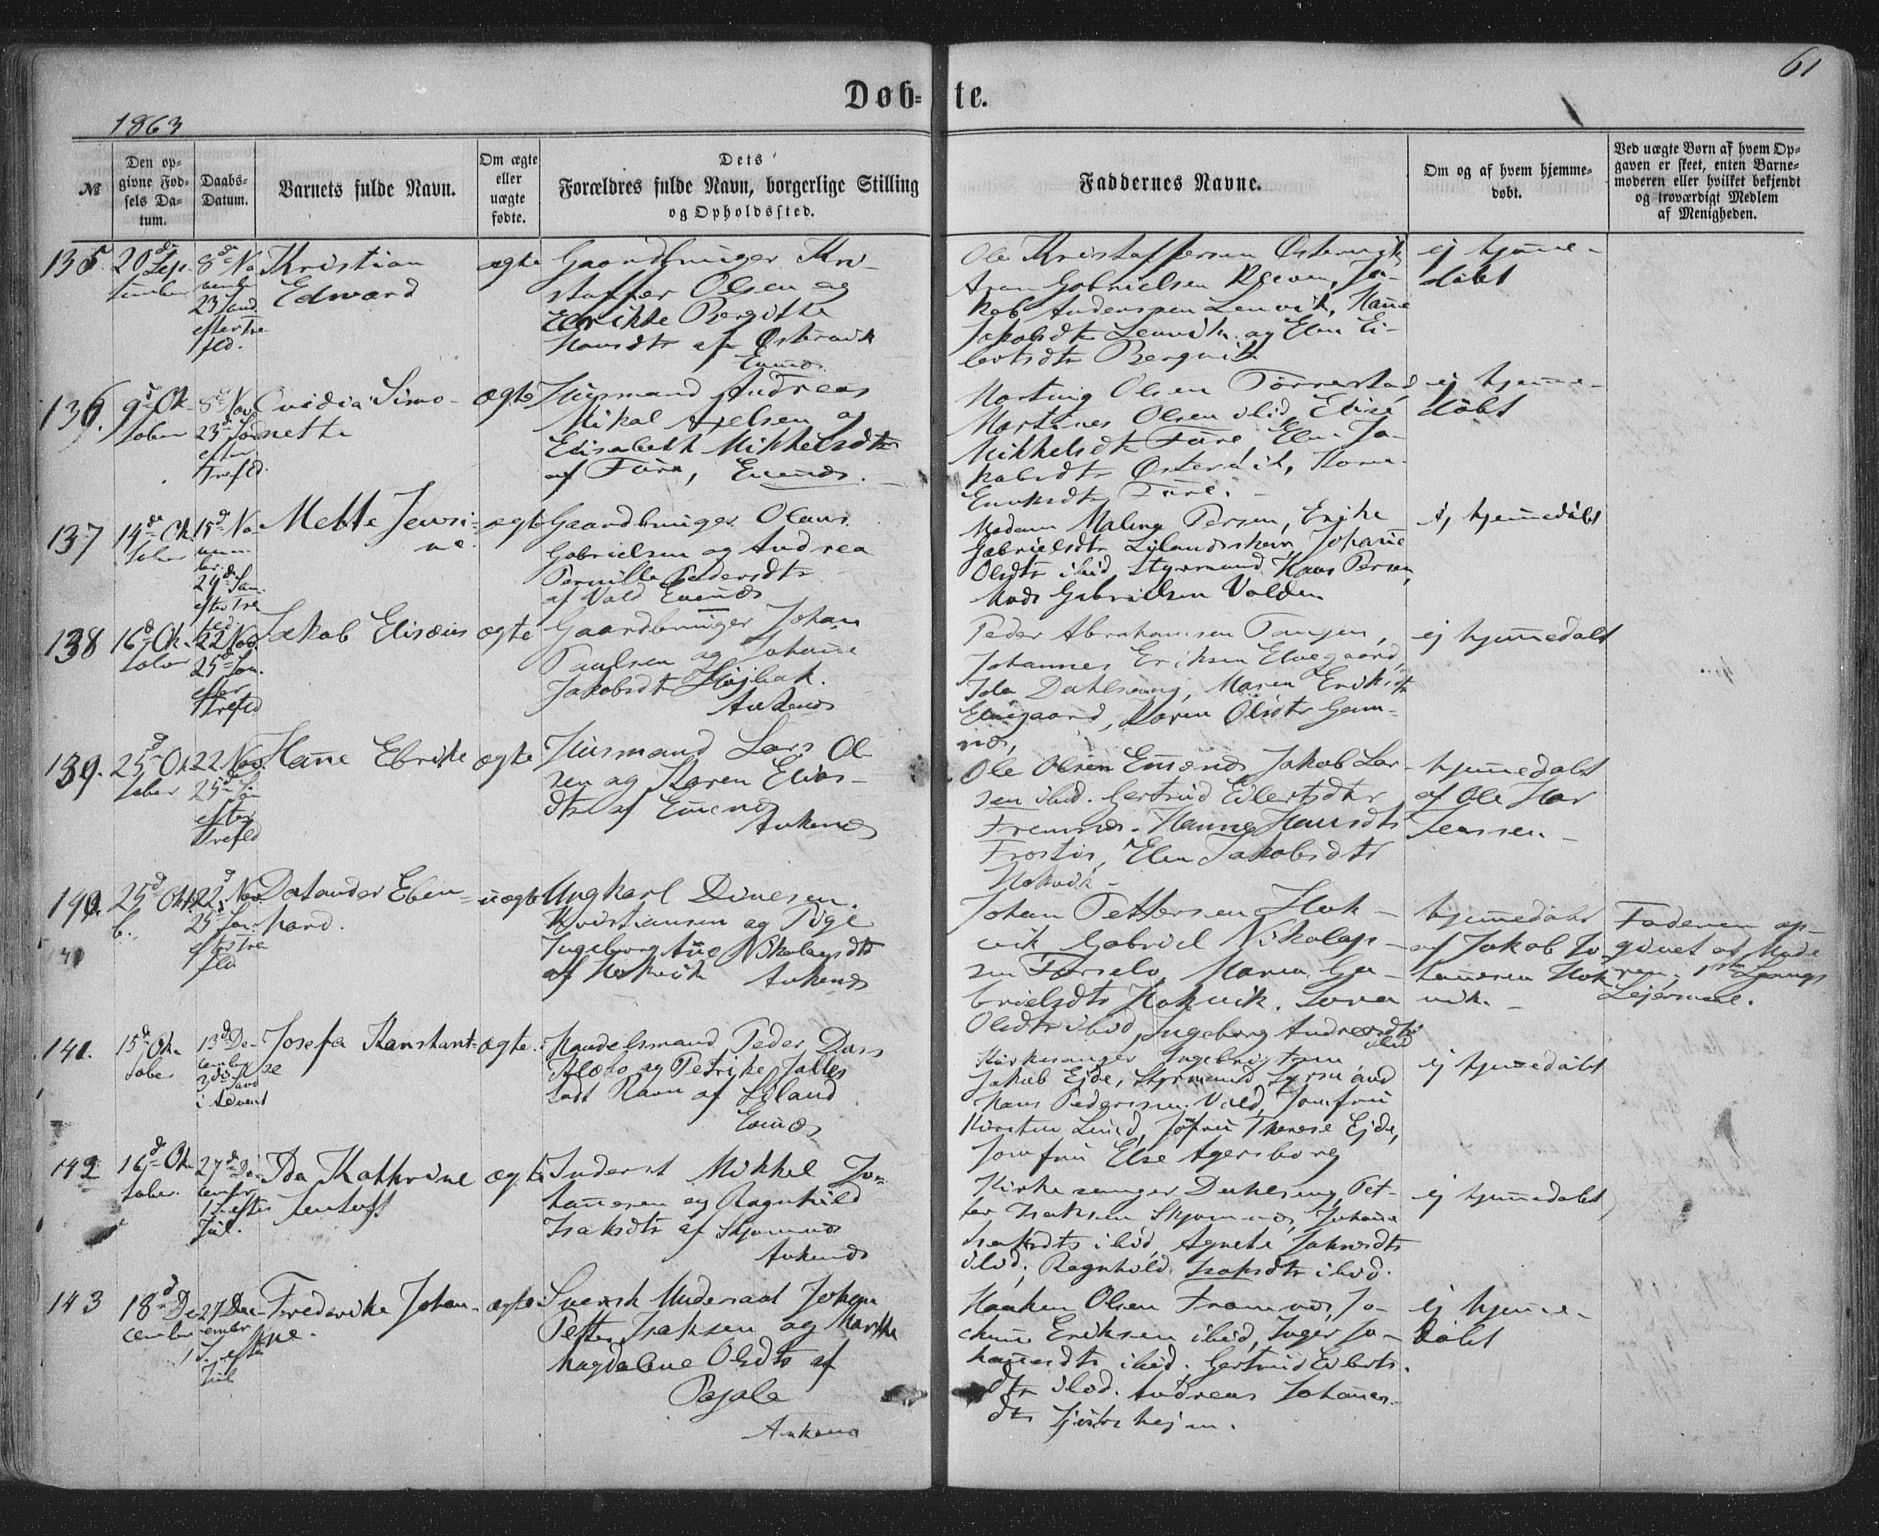 61
Døb- te.
1863
№
Den op-
givne Fød-
sels Da-
tum.
Daabs-
Datum.
Barnets fulde Navn.
Om ægte
eller
uægte
fødte.
Dets
Forældres fulde Navn, borgerlige Stilling
og Opholdssted.
Faddernes Navne.
Om og af hvem hjemme-
døbt.
Ved uægte Børn af hvem Op-
gaven er skeet, enten Barne-
moderen eller hvilket bekjendt
og troværdigt Medlem
af Menigheden.
135.
20de Sep-
tember
8de No-
vember
23 Sønd.
efter Tre
fld.
Kristian
Edward
ægte
Gaardbruger Kri-
stoffer Olsen og
Elrikke Bergitte
Hansdtr af Østervik
Evenæs
Ole Kristoffersen Østervik
Aron Gabrielsen Ja-
kob Anderssen Lenvik, Hanne
Jakobsdtr Lenvik og Elen Ei-
lertsdtr Bergvik
ej hjemme-
døbt
136.
9d Ok-
tober
8d Nov
23d Søn
efter
Trefld.
Ovidia Simo-
nette
ægte
Husmand Andreas
Mikal Axelsen og
Elisabeth Mikkelsdtr
af Fure, Evenæs.
Olsen Tørrestad,
Martines Olsen ibid, Elise
Mikkelsdtr Fure, Elen Ja-
kobsdtr Østervik,
Eriksdtr Fure.
ej hjemme-
døbt
137
14de Ok-
tober
15d No-
vem-
ber
24d Søn.
efter Tre
fld
Mette Jensi-
ne.
ægte
Gaardbruger Olaus
Gabrielsen og Andrea
Pernille Pedersdtr
af Vold Evenæs
Madam Malena Persen,
Gabrielsdtr Johanne
Olsdtr ibid Styrmand Hans Persen,
Mads Gabrielsen Volden
ej hjemmedøbt
138
16d Ok-
tober
22 Nov.
25d Søn.
efter
Trefld
Jakob Elisæus
ægte
Gaardbruger Johan
Paulsen og Johanne
Jakobsdtr
Ankenæs
Peder Abrahamsen Tangen,
Johannes Eriksen Elvegaard,
Ida Dahlseng, Maren Eriksdtr
Elvegaard, Karen Olsdtr
ej hjemmedøbt
139.
25d Ok-
tober
22 Nov
25d Søn
efter
Trefld
Hanne Ebrike
ægte
Husmand Lars Ol-
sen og Karen Elias-
dtr af Emenæs
Ankenæs
Ole Olsen Emenæs Jakob Lar-
sen ibid. Gertrud Eilertsdtr
Fremnæs. Hanna Hansdtr
Elen Jakobsdtr
Hokvik
hjemmedøbt
af Ole Hor
Jenssen.
140.
41
25d Okt
b.
22d Nov.
25d Søn.
efter Tre
fld
Eben-
hard.
uægte
Ungkarl Dinesen.
Kristiansen og Pige
Ingeborg Ane Nikolaysdtr
af Hokvik Ankenæs
Johan Pettersen Hok-
vik Gabriel Nikolay-
sen Maren Ga-
brielsdtr Hokvik.
Olsdtr ibid, Ingeborg Andreasdtr
ibid
hjemmedøbt
af Jakob Jo-
hannesen Hok-
vik.
Faderen op-
givet af Mode-
ren, 1ste Gangs
Lejermaal.
141.
15de Ok-
tober
13d De-
cember
3die Sønd
i Advent
Josefa Konstant-
se
ægte.
Handelsmand Peder Dass
Klæbo og Petrike
Ravn af Liland
Evenæs
Kirkesanger Ingebrigtsen
Jakob Ejde, Styrmand
Hans Pederssen Vold, Jomfru
Kirsten Lund, Jofru Therese Ejde,
Jomfru Else Agersborg
ej hjemmedøbt
142
16d Ok-
tober.
27d De-
cember
1 S. efter
Jul.
Ida Kathrine
Jentoft
ægte
Inderst Mikkel Jo-
hannesen og Ragnhild
Isaksdtr af Skjomnæs
Ankenæs
Kirkesanger Dahlseng Pet-
ter Isaksen Skjomnæs, Johanne
Isaksdtr ibid, Agnete
ibid, Ragnhild Isaksdtr ibid.
ej hjemmedøbt
143
18d De-
cember
27 Dec-
ember
1 S. efter
Jul
Frederike Johan-
ægte
Svensk Undersaat Johan
Petter Isaksen og Martha
Magdalene Olsdtr af
Pajala
Ankenæs
Haaken Olsen Framnæs, Jo-
Eriksen ibid, Inger Jo-
hannesdtr ibid. Gertrud Eilerts-
dtr ibid. Andreas Johannes-
ej hjemme-
døbt